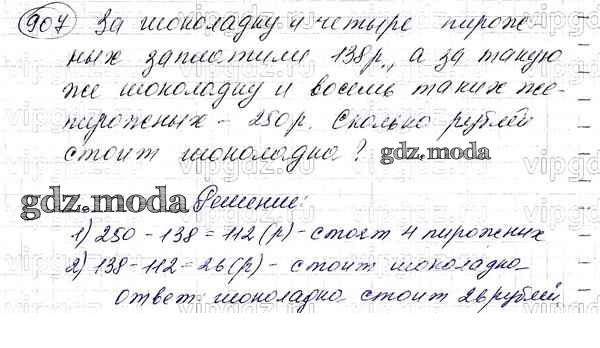 907 За шоколадку и четыре пирож-
ных заплатили 138 р., а за такую
же шоколадку и восемь таких же
пирожных - 250 р. Сколько рублей
стоит шоколадка? gdz.moda
gdz.moda Решение:
1) 250 - 138 = 112 (р) - стоят 4 пирожных
2) 138 - 112 = 26 (р) - стоит шоколадка
Ответ: шоколадка стоит 26 рублей